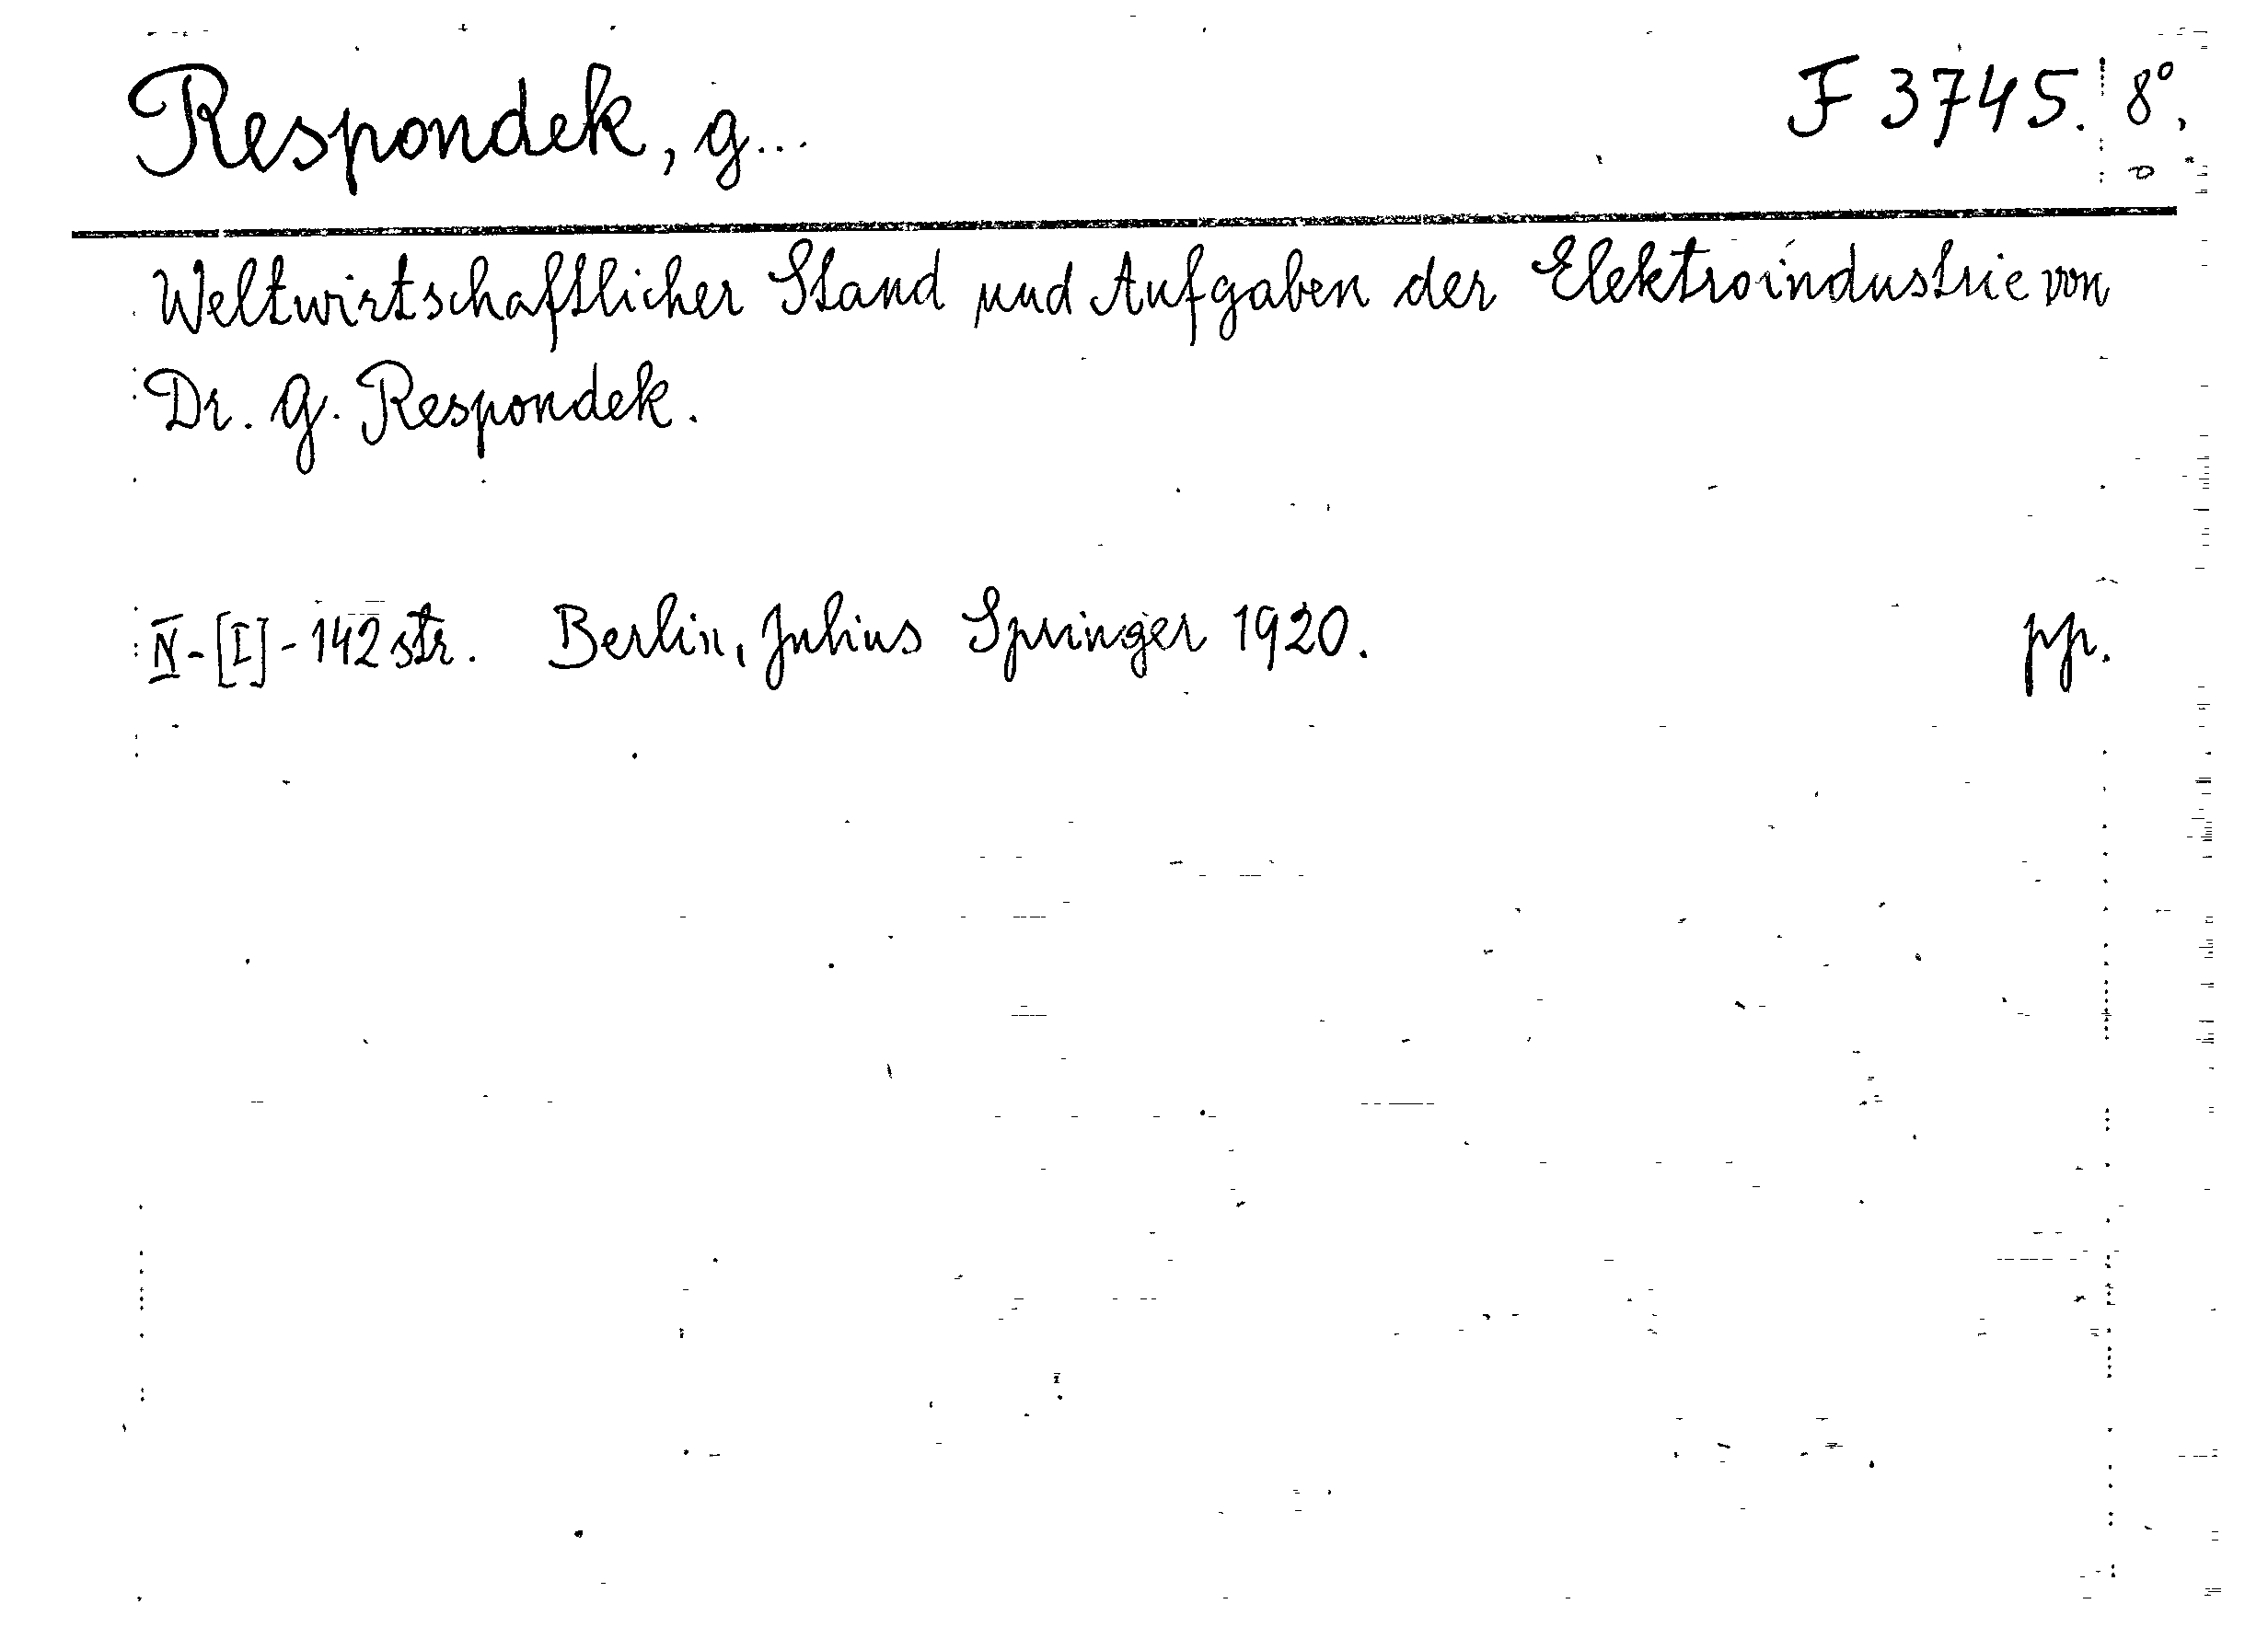 Respondek, G... F 3745. 8°,
Weltwirtschaftlicher Stand und Aufgaben der Elektroindustrie von
Dr. G. Respondek.
IV-[I]-142 str. Berlin, Julius Springer 1920. pp.